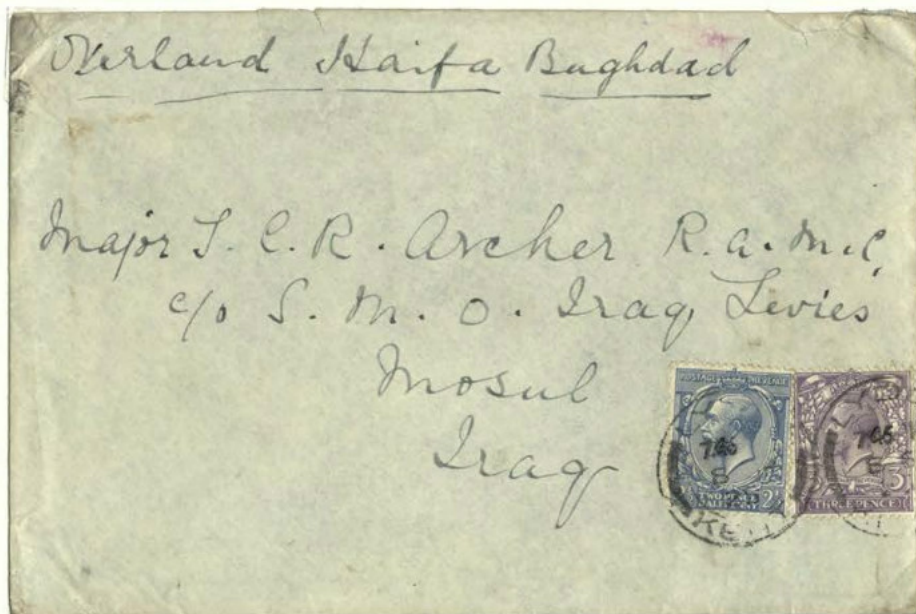 Overland Haifa Baghdad
Major T. C. R. Archer R.a.m.C,
c/o S. M. O. Iraq Levies
Mosul
Iraq
POSTAGE REVENUE
TWO PENCE
HALFPENNY
THREE PENCE
KENT